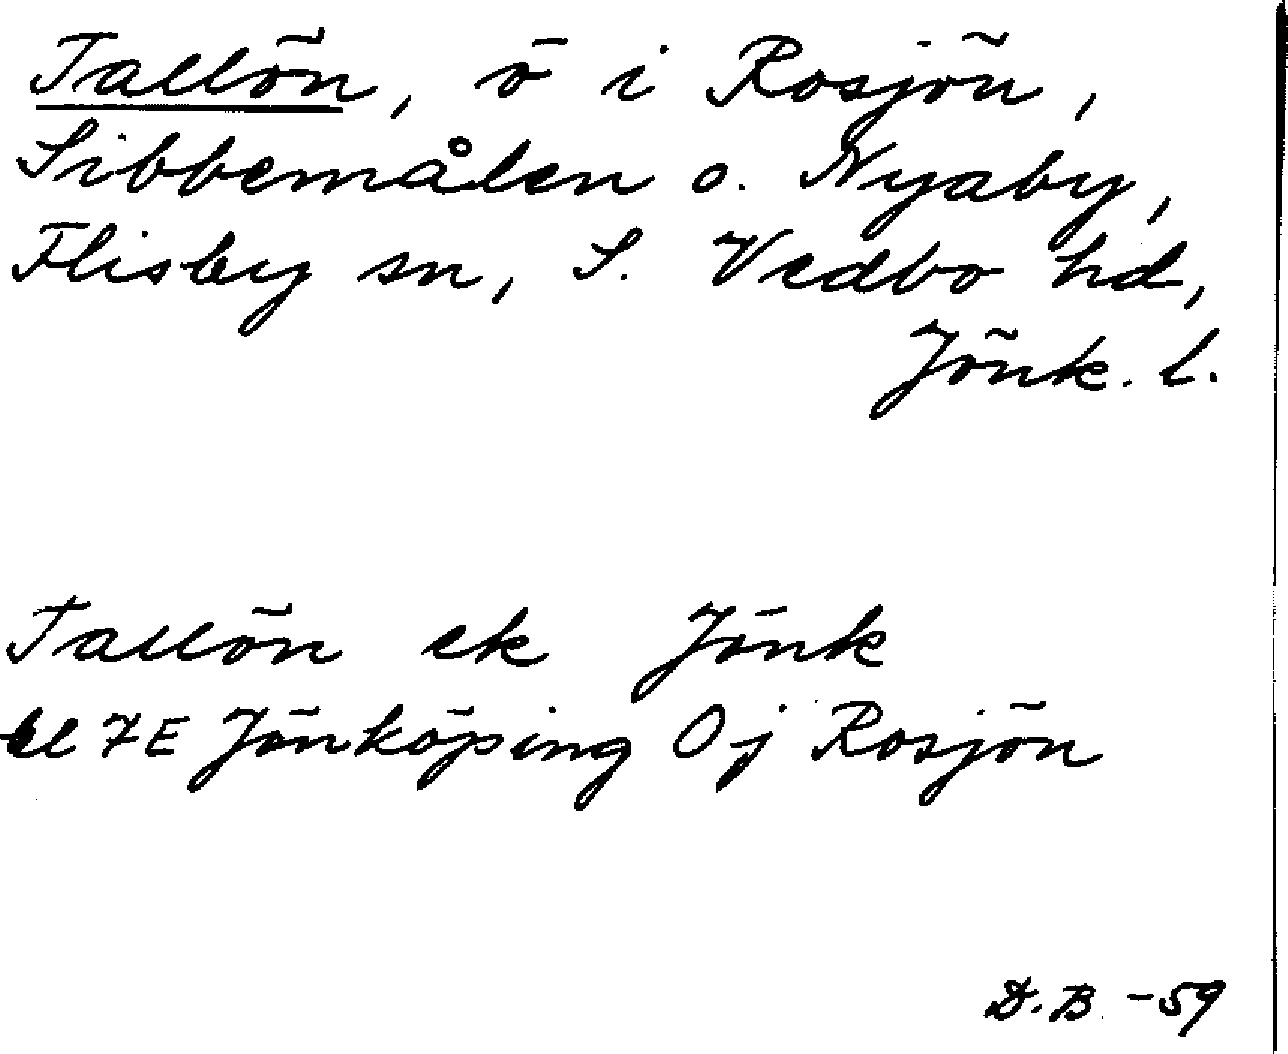 Tallön, ö i Rosjön,
Sibbemålen o. Nyaby,
Flisby sn, S. Vedbo hd,
Jönk. l.
Tallön ek Jönk
bl 7E Jönköping Oj Rosjön
D.B -59